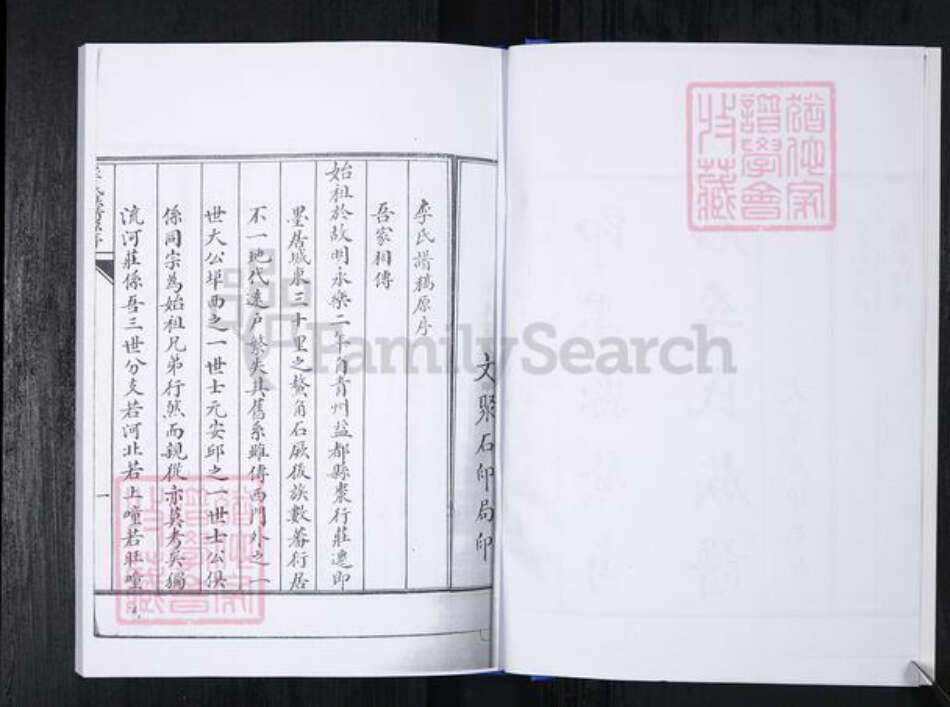 文聚石印局印
李氏譜稿原序
吾家相傳
始祖於故明永樂二年自青州益都縣棗行莊遷即
墨居城東三十里之鰲角石厥後族數蕃衍居
不一地代遠戶繁失其舊系雖傳西門外之一
世大公埠西之一世士元安邱之一世士公俱
係同宗為始祖兄弟行然而親從亦莫考矣獨
流河莊係吾三世分支若河北若上疃若旺疃
一
FamilySearch
譜學會
收藏